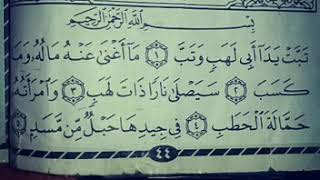 بِسْمِ اللَّهِ الرَّحْمَٰنِ الرَّحِيمِ
تَبَّتْ يَدَا أَبِي لَهَبٍ وَتَبَّ ﴿١﴾ مَا أَغْنَىٰ عَنْهُ مَالُهُ وَمَا
كَسَبَ ﴿٢﴾ سَيَصْلَىٰ نَارًا ذَاتَ لَهَبٍ ﴿٣﴾ وَامْرَأَتُهُ
حَمَّالَةَ الْحَطَبِ ﴿٤﴾ فِي جِيدِهَا حَبْلٌ مِّن مَّسَدٍ ﴿٥﴾
٤٤